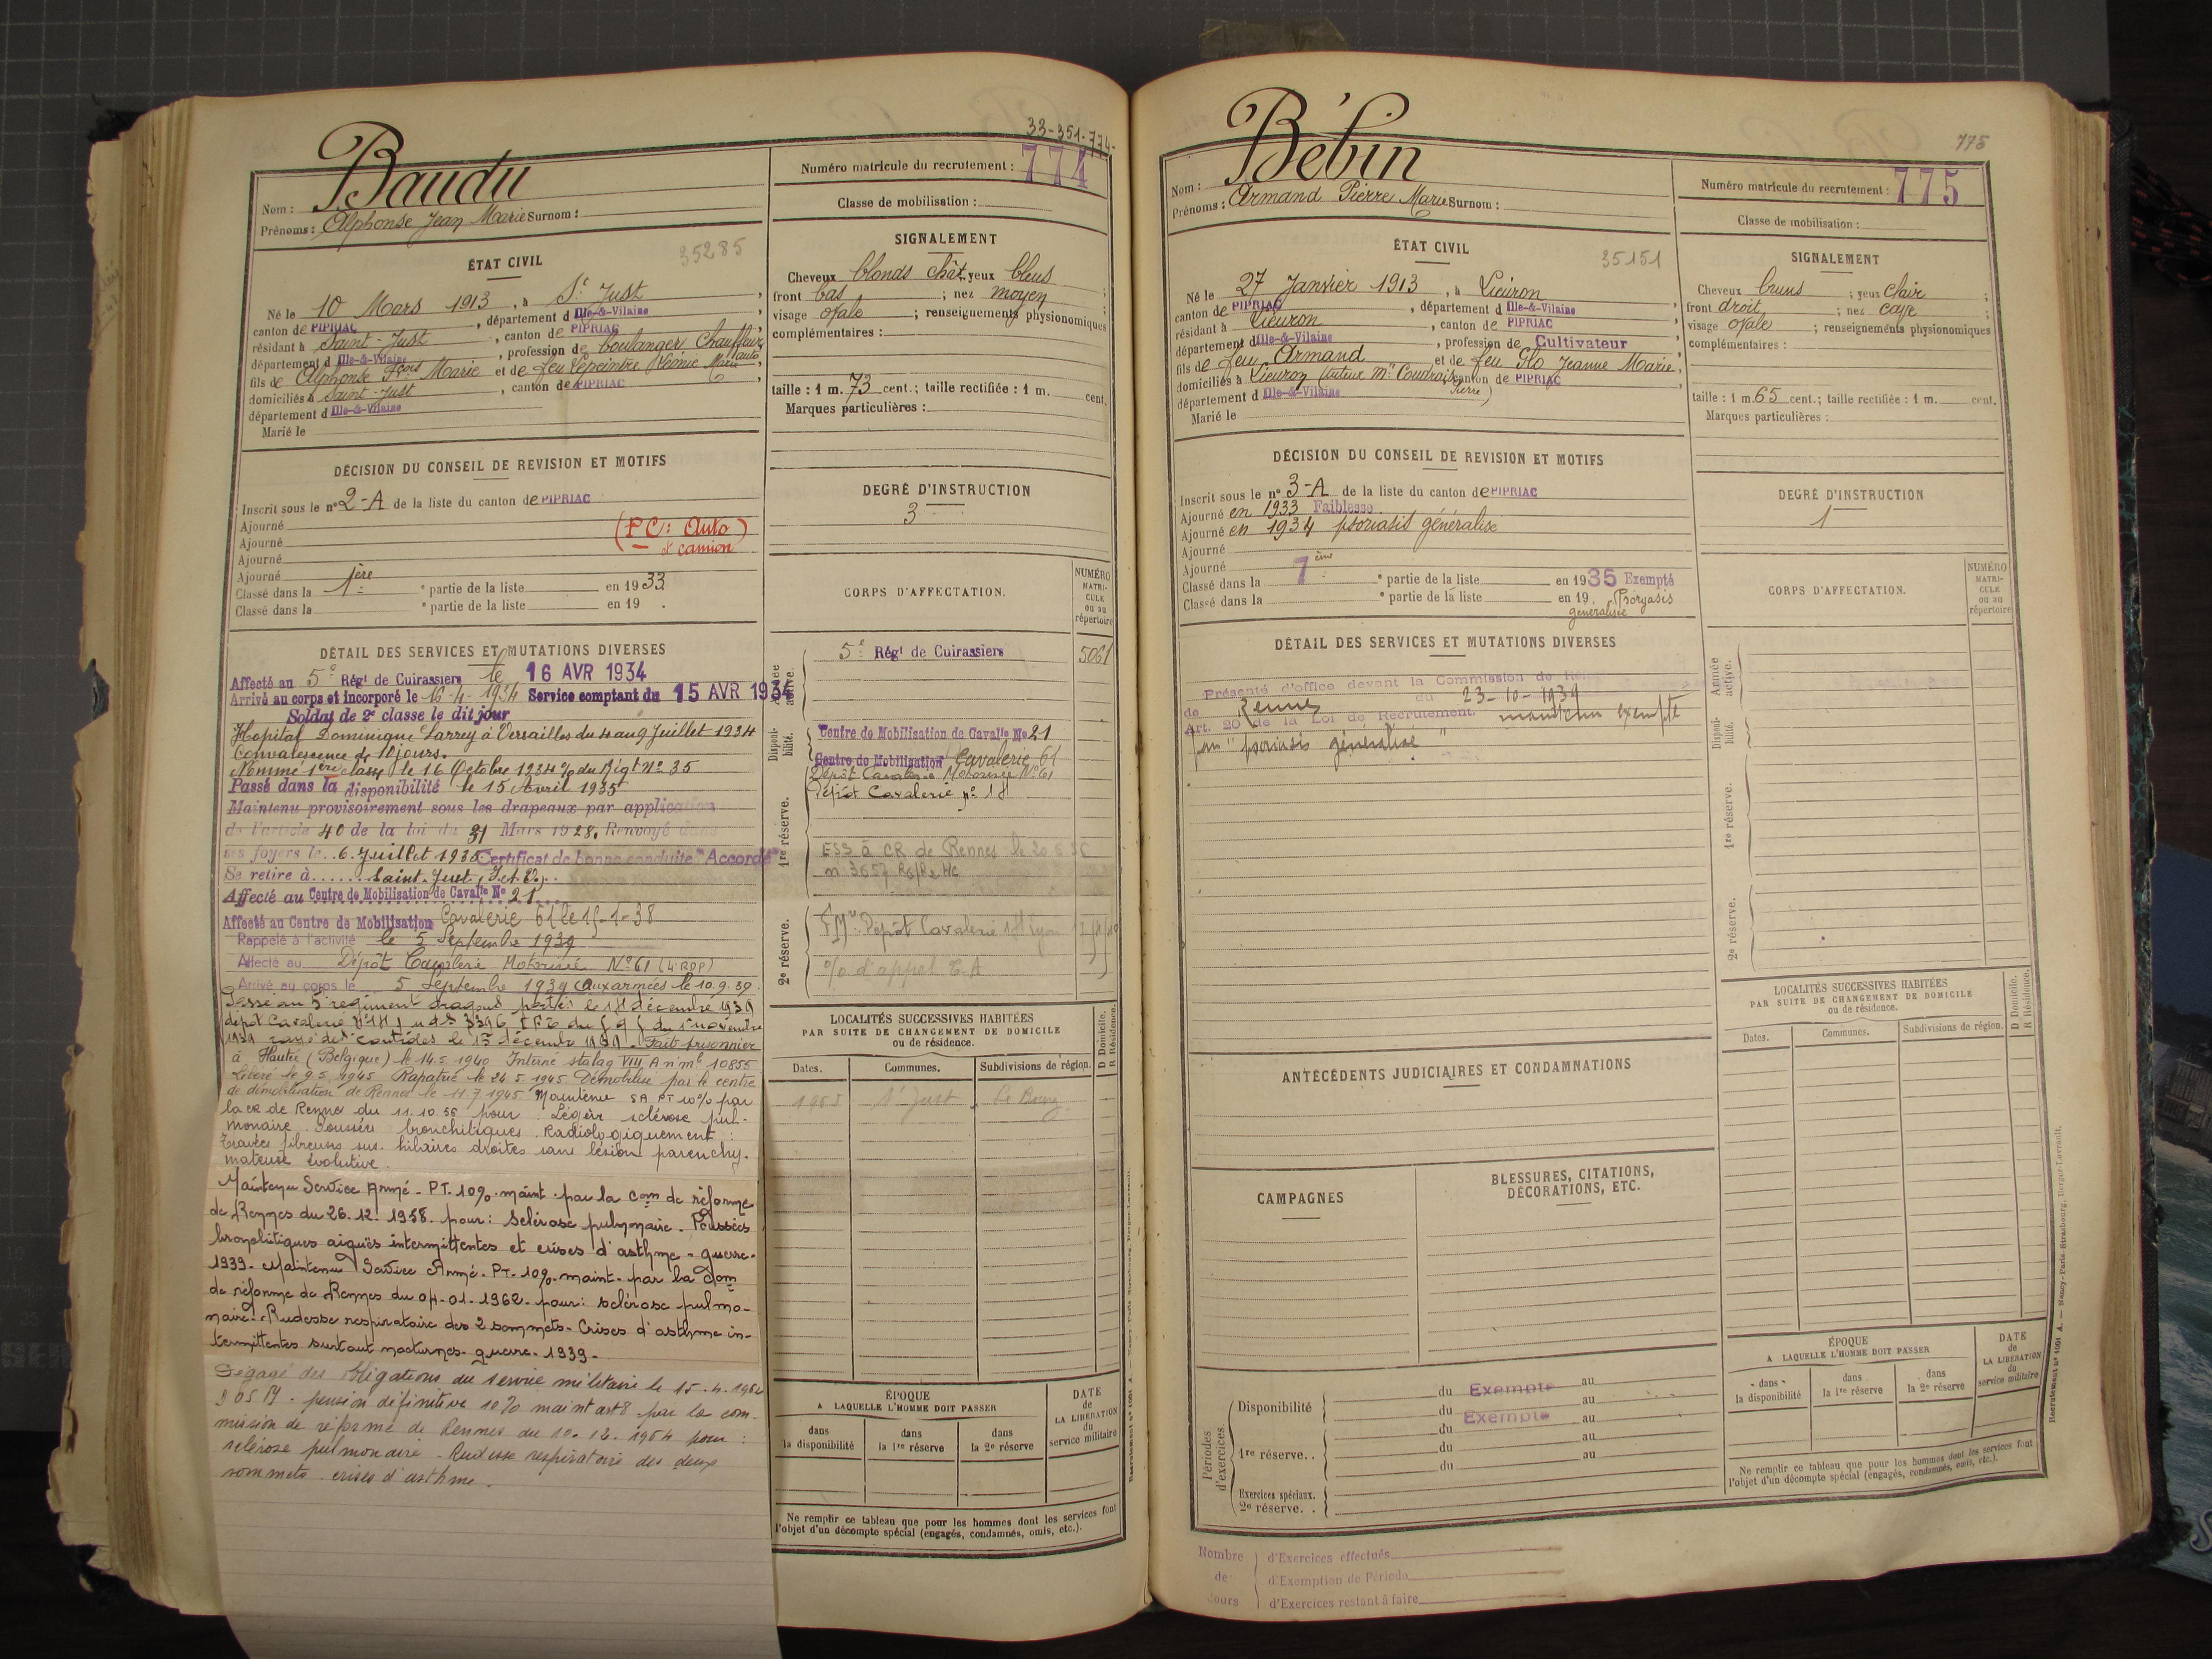 33-351-774-
Nom : Baudu
Prénoms : Alphonse Jean Marie Surnom :
Numéro matricule du recrutement : 774
Classe de mobilisation :
ÉTAT CIVIL
35285
Né le 10 Mars 1913, à St Just,
canton de PIPRIAC, département d Ille-&-Vilaine
résidant à Saint-Just, canton de PIPRIAC
département d Ille-&-Vilaine, profession de boulanger Chauffeur auto,
fils de Alphonse Fçois Marie et de feu Lepeintre Noémie Marie,
domiciliés à Saint-Just, canton de PIPRIAC,
département d Ille-&-Vilaine
Marié le
SIGNALEMENT
Cheveux blonds chât. yeux bleus ;
front bas ; nez moyen ;
visage ovale ; renseignements physionomiques
complémentaires :
taille : 1 m. 73 cent.; taille rectifiée : 1 m. cent.
Marques particulières :
DÉCISION DU CONSEIL DE REVISION ET MOTIFS
Inscrit sous le n° 2-A de la liste du canton de PIPRIAC
Ajourné
Ajourné
Ajourné
Ajourné
(PC : Auto)
et camion
Classé dans la 1ère partie de la liste en 1933
Classé dans la ° partie de la liste en 19 .
DEGRÉ D'INSTRUCTION
3
CORPS D'AFFECTATION.
NUMÉRO MATRICULE ou au répertoire
Armée active.
5e Régt de Cuirassiers 5061
Disponibilité.
Centre de Mobilisation de Cavalie No 21
Centre de Mobilisation Cavalerie 61
Dépôt Cavalerie Motorisée No 61
Dépôt Cavalerie no 18
1re réserve.
ESS à CR de Rennes le 20
n° 3657
2e réserve.
Dépôt Cavalerie 18
% d'appel
DÉTAIL DES SERVICES ET MUTATIONS DIVERSES
Affecté au 5e Régt de Cuirassiers le 16 AVR 1934
Arrivé au corps et incorporé le 16-4-1934 Service comptant du 15 AVR 1934
Soldat de 2e classe le dit jour
Hopital Dominique Larrey à Versailles du 4 au 9 Juillet 1934
Convalescence de 10 jours.
Nommé 1ère classe le 16 Octobre 1934 % du Régt No 35
Passé dans la disponibilité le 15 Avril 1935
Maintenu provisoirement sous les drapeaux par application
de l'article 40 de la loi du 31 Mars 1928. Renvoyé dans
ses foyers le 6 Juillet 1935 Certificat de bonne conduite "Accordé"
Se retire à Saint-Just, I. et V.
Affecté au Centre de Mobilisation de Cavalie No 21
Affecté au Centre de Mobilisation Cavalerie 61 le 15-1-38
Rappelé à l'activité le 5 Septembre 1939
Affecté au Dépôt Cavalerie Motorisée No 61 (4e RDP)
Arrivé au corps le 5 Septembre 1939 (aux armées le 10.9.39.
Passé au 5e régiment dragons portés le 18 décembre 1939
dépôt Cavalerie no 18 du 1er novembre
1939 rayé des contrôles le 17 décembre 1939. Fait prisonnier
à Hautré (Belgique) le 14.5.1940 Interné stalag VIII A n° mle 10855
Libéré le 9.5.1945 Rapatrié le 24.5.1945 Démobilisé par le centre
de démobilisation de Rennes le 11.7.1945 Maintenu SA PT 10% par
la CR de Rennes du 11.10.56 pour : Légère sclérose pul-
monaire. Poussées bronchitiques. Radiologiquement :
Travées fibreuses sus-hilaires droites sans lésion parenchy-
mateuse évolutive.
Maintenu Service Armé. PT. 10% maint. par la Com de réforme
de Rennes du 26.12.1958. pour : Sclérose pulmonaire. Poussées
bronchitiques aiguës intermittentes et crises d'asthme - guerre -
1939. Maintenu Service Armé. PT. 10% maint. par la Com
de réforme de Rennes du 04-01-1962. pour : sclérose pulmo-
naire. Rudesse respiratoire des 2 sommets. Crises d'asthme in-
termittentes surtout nocturnes. guerre. 1939.
Dégagé des Obligations du service militaire le 15.4.1962
pension définitive 10% maint art 8 par la com-
mission de réforme de Rennes du 10.12.1964 pour :
sclérose pulmonaire. Rudesse respiratoire des deux
sommets. crises d'asthme.
LOCALITÉS SUCCESSIVES HABITÉES
PAR SUITE DE CHANGEMENT DE DOMICILE
ou de résidence.
D Domicile. R Résidence.
Dates. Communes. Subdivisions de région.
1953 St Just Le Bourg
ÉPOQUE
A LAQUELLE L'HOMME DOIT PASSER
dans la disponibilité
dans la 1re réserve
dans la 2e réserve
DATE de LA LIBÉRATION du service militaire
Ne remplir ce tableau que pour les hommes dont les services font
l'objet d'un décompte spécial (engagés, condamnés, omis, etc.).
775
Nom : Bébin
Prénoms : Armand Pierre Marie Surnom :
Numéro matricule du recrutement : 775
Classe de mobilisation :
ÉTAT CIVIL
35151
Né le 27 Janvier 1913, à Lieuron,
canton de PIPRIAC, département d Ille-&-Vilaine
résidant à Lieuron, canton de PIPRIAC
département d Ille-&-Vilaine, profession de Cultivateur
fils de feu Armand et de feu Glo Jeanne Marie,
domiciliés à Lieuron (tuteur Mr Coudrais Pierre) canton de PIPRIAC,
département d Ille-&-Vilaine
Marié le
SIGNALEMENT
Cheveux bruns ; yeux clair ;
front droit ; nez cave ;
visage ovale ; renseignements physionomiques
complémentaires :
taille : 1 m. 65 cent.; taille rectifiée : 1 m. cent.
Marques particulières :
DÉCISION DU CONSEIL DE REVISION ET MOTIFS
Inscrit sous le n° 3-A de la liste du canton de PIPRIAC
Ajourné en 1933 Faiblesse
Ajourné en 1934 psoriasis généralisé
Ajourné
Ajourné
Classé dans la 7ème partie de la liste en 1935 Exempté
Classé dans la ° partie de la liste en 19 . Psoryasis
généralisée
DEGRÉ D'INSTRUCTION
1
CORPS D'AFFECTATION.
NUMÉRO MATRICULE ou au répertoire
Armée active.
Disponibilité.
1re réserve.
2e réserve.
DÉTAIL DES SERVICES ET MUTATIONS DIVERSES
Présenté d'office devant la Commission de
de Rennes du 23-10-1939
Art. 20 de la Loi de Recrutement. maintenu exempté
pour "psoriasis généralisé"
ANTÉCÉDENTS JUDICIAIRES ET CONDAMNATIONS
CAMPAGNES
BLESSURES, CITATIONS,
DÉCORATIONS, ETC.
LOCALITÉS SUCCESSIVES HABITÉES
PAR SUITE DE CHANGEMENT DE DOMICILE
ou de résidence.
D Domicile. R Résidence.
Dates. Communes. Subdivisions de région.
Périodes d'exercices.
Disponibilité
du Exempté au
du Exempté au
du au
1re réserve. .
du au
du au
Exercices spéciaux.
2e réserve. .
ÉPOQUE
A LAQUELLE L'HOMME DOIT PASSER
dans la disponibilité
dans la 1re réserve
dans la 2e réserve
DATE de LA LIBÉRATION du service militaire
Ne remplir ce tableau que pour les hommes dont les services font
l'objet d'un décompte spécial (engagés, condamnés, omis, etc.).
Nombre de Jours
d'Exercices effectués
d'Exemption de Période
d'Exercices restant à faire
Recrutement n° 1091 A. — Nancy-Paris-Strasbourg, Berger-Levrault.